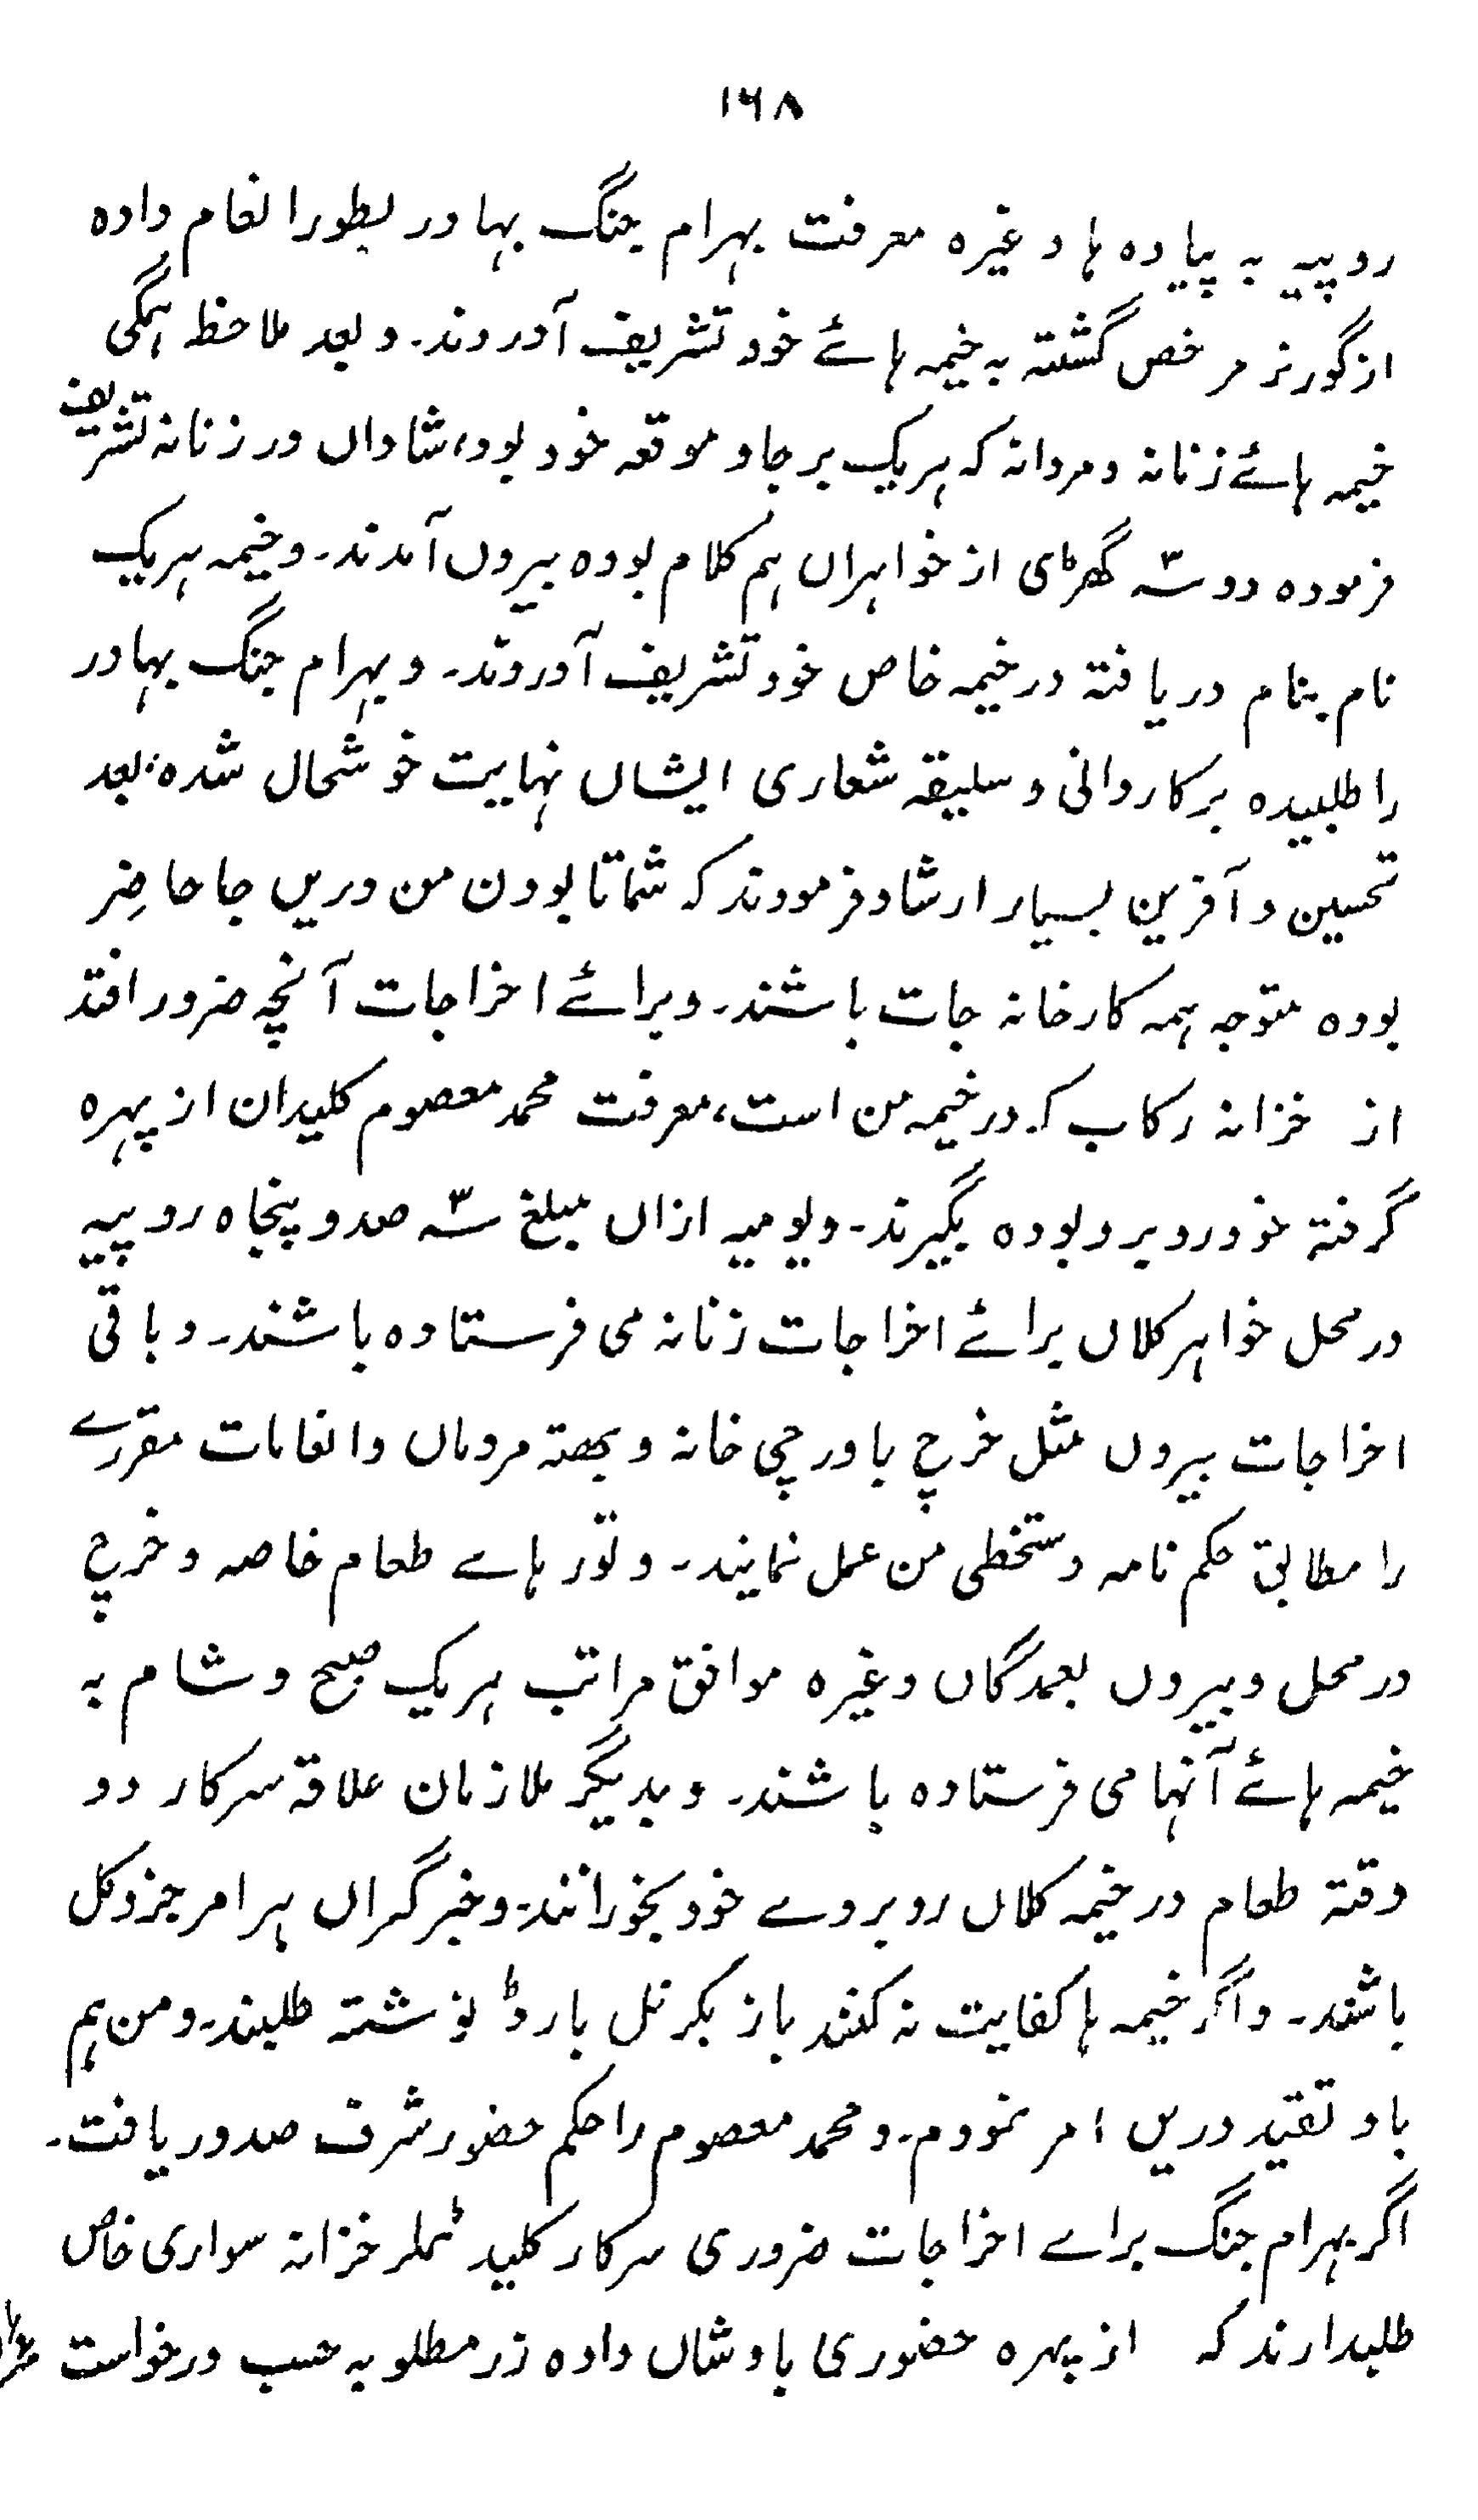 ۱۶۸
روپیہ بہ پیادہ ہا وغیرہ معرفت بہرام جنگ بہادر بطور انعام دادہ
از گورنر مرخص گشتہ بہ خیمہ ہائے خود تشریف آوردند۔ و بعد ملاحظہ ہمگی
خیمہ ہائے زنانہ و مردانہ کہ ہریک بر جا و موقعہ خود بود، شاداں در زنانہ تشریف
فرمودہ دو سہ گھڑی از خواہراں ہم کلام بودہ بیروں آمدند۔ و خیمہ ہریک
نام بنام دریافتہ در خیمہ خاص خود تشریف آوردند۔ و بہرام جنگ بہادر
را طلبیدہ بر کاردانی و سلیقہ شعاری ایشاں نہایت خوشحال شدہ، بعد
تحسین و آفرین بسیار ارشاد فرمودند کہ شما تا بودن من دریں جا حاضِر
بودہ متوجہ ہمہ کارخانہ جات باشند۔ و برائے اخراجات آنچہ ضرور افتد
از خزانہ رکاب کہ در خیمہ من است، معرفت محمد معصوم کلیدان از پہرہ
گرفتہ خود روبرو بودہ بگیرند۔ و یومیہ ازاں مبلغ سہ صد و پنجاہ روپیہ
در محل خواہر کلاں برائے اخراجات زنانہ می فرستادہ باشند۔ و باقی
اخراجات بیروں مثل خرچ باورچی خانہ و بھتہ مردماں و انعامات مقررے
را مطابق حکم نامہ دستخطی من عمل نمایند۔ و تورہاے طعام خاصہ و خرچ
در محل و بیروں بعمدگاں وغیرہ موافق مراتب ہریک صبح و شام بہ
خیمہ ہائے آنہا می فرستادہ باشند۔ و بدیگر ملازمان علاقہ سرکار دو
وقتہ طعام در خیمہ کلاں روبروے خود بخورانند۔ و خبرگیراں ہر امر جز و کل
باشند۔ و اگر خیمہ ہا کفایت نہ کنند باز بکرنل بارڈ نوشتہ طلبند۔ و من ہم
باو تقید دریں امر نمودم۔ و محمد معصوم را حکم حضور شرف صدور یافت۔
اگر بہرام جنگ براے اخراجات ضروری سرکار کلید خزانہ سواری خاص
طلبدارند کہ از پہرہ حضوری باوشاں دادہ زر مطلوبہ حسب درخواست